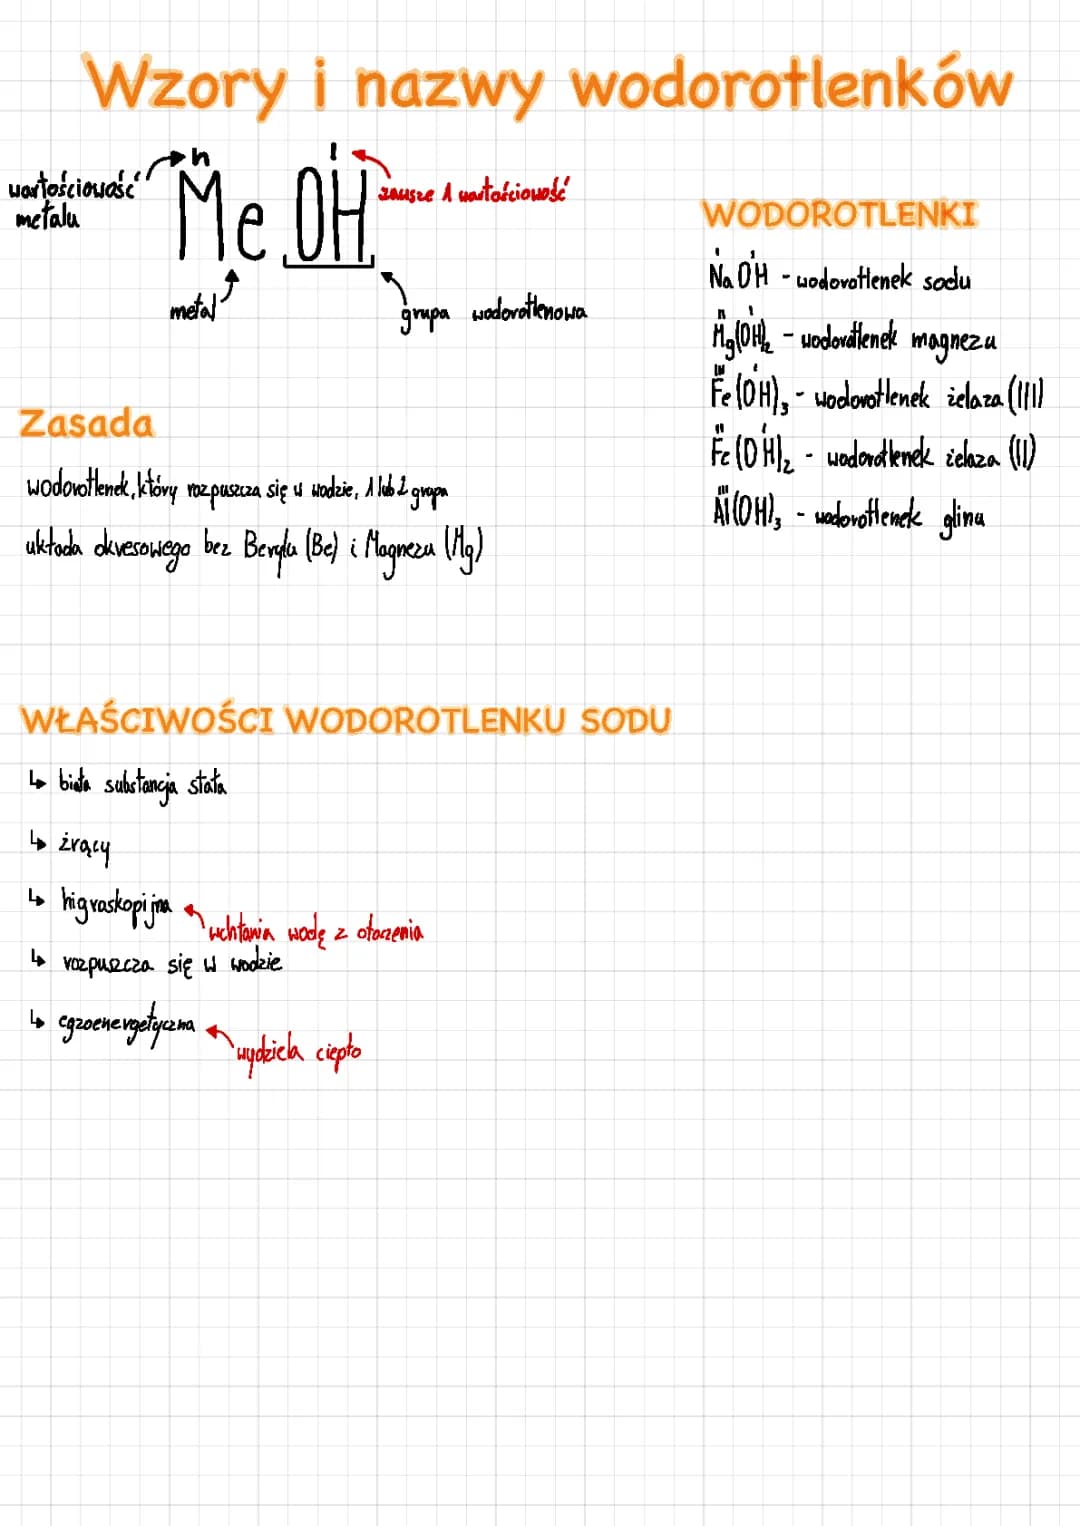 Wzory i nazwy wodorotlenków
n I
wartościowość
metalu
Me OH
zawsze 1 wartościowość
metal
grupa wodorotlenowa
WODOROTLENKI
I I
NaOH - wodorotlenek sodu
II I
Mg(OH)₂ - wodorotlenek magnezu
III I
Fe(OH)₃ - wodorotlenek żelaza (III)
II I
Fe(OH)₂ - wodorotlenek żelaza (II)
III
Al(OH)₃ - wodorotlenek glinu
Zasada
wodorotlenek, który rozpuszcza się w wodzie, 1 lub 2 grupa
układa okresowego bez Berylu (Be) i Magnezu (Mg)
WŁAŚCIWOŚCI WODOROTLENKU SODU
↳ biała substancja stała
↳ żrący
↳ higroskopijna
wchłania wodę z otoczenia
↳ rozpuszcza się w wodzie
↳ egzoenergetyczna
wydziela ciepło